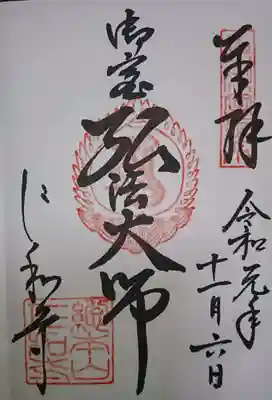 奉拝
令和元年
十一月六日
御室
弘法大師
仁和寺
總本山
仁和寺